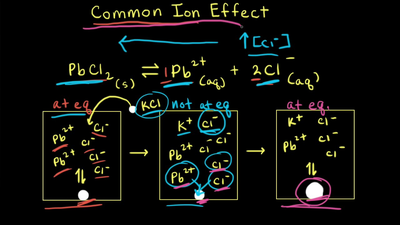 Common Ion Effect
↑[Cl⁻]
PbCl₂(s) ⇌ 1Pb²⁺(aq) + 2Cl⁻(aq)
at eq. KCl not at eq at eq.
Pb²⁺ Cl⁻ K⁺ Cl⁻ K⁺ Cl⁻
Cl⁻ Cl⁻ Cl⁻
Pb²⁺ Cl⁻ Pb²⁺ Cl⁻ Pb²⁺ Cl⁻
Cl⁻ Pb²⁺ Cl⁻ Cl⁻
Cl⁻